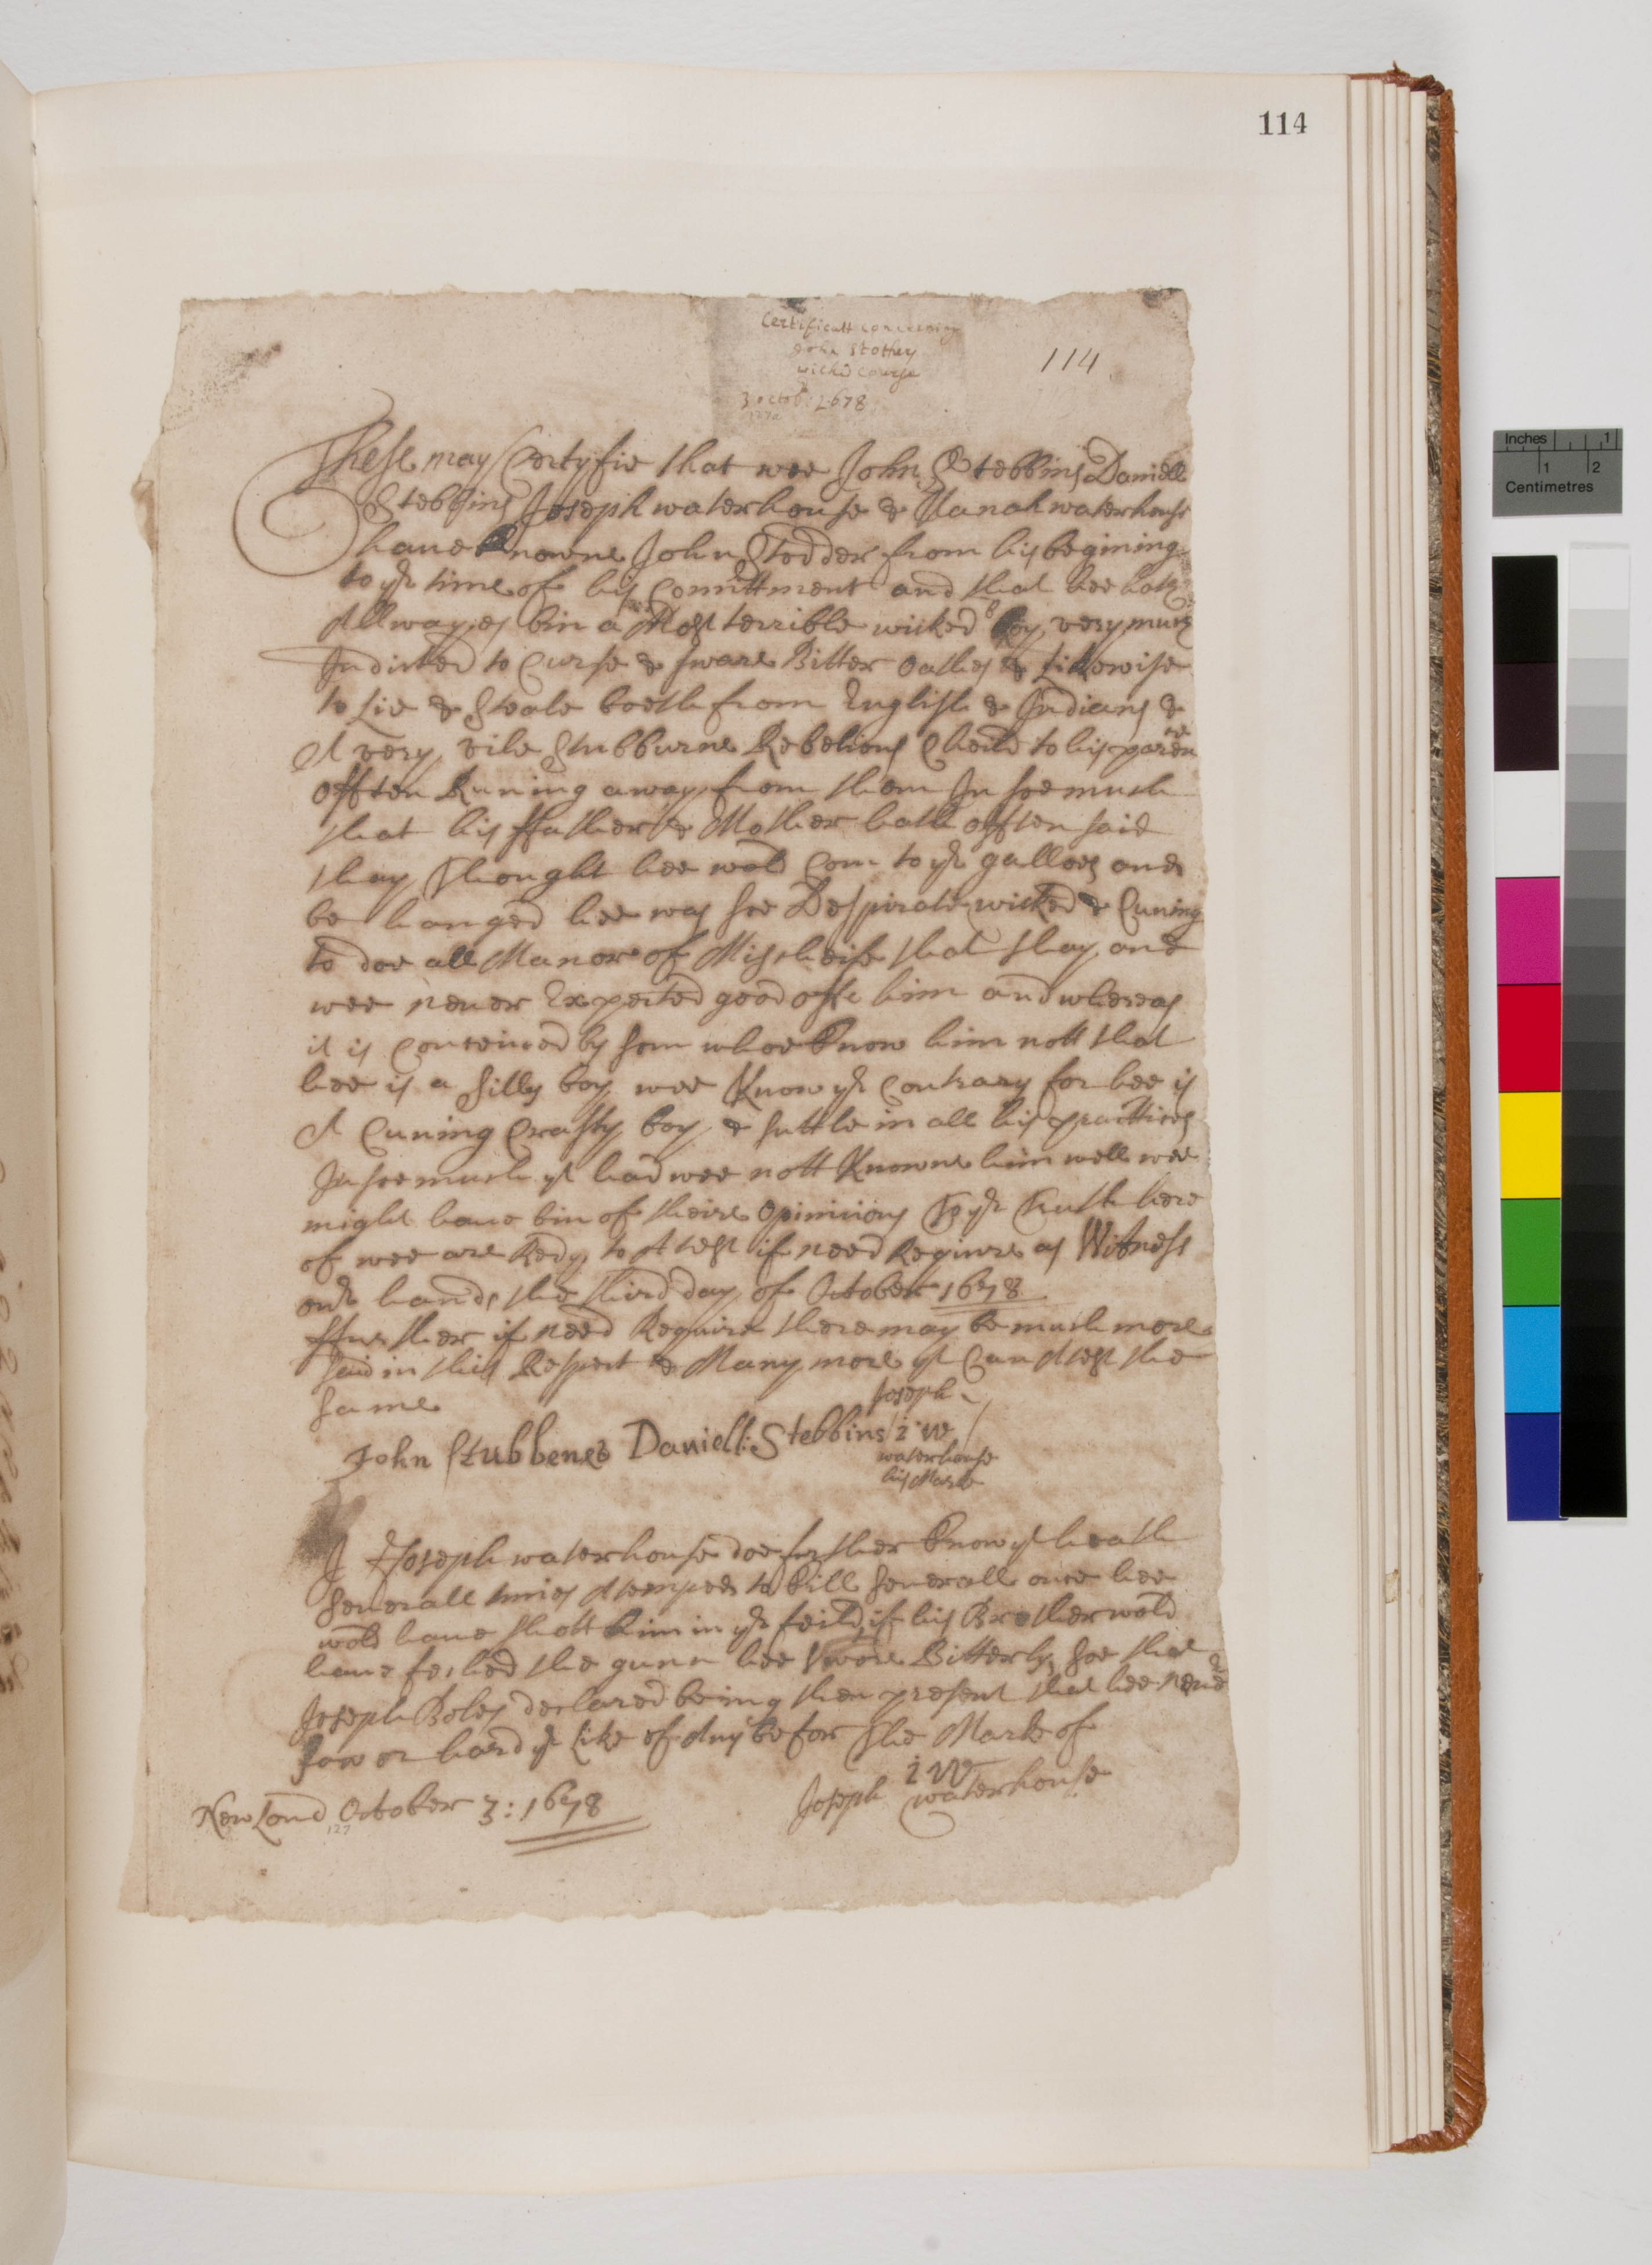 114
Certificatt concerning
John Stother
wicked Courge
3 octob: 1678
127a
114
These may Certyfie that wee John Stebbins Daniell
Stebbins Joseph waterhouse & Hanah waterhouse
haue Knowne John Stodder from his begining
to ye time of his Comittment and that hee hath
Allwayes bin a Most terrible wicked boy very much
Indicted to Curse & sware Bitter oathes & Likewise
to Lie & Steale boeth from English & Indians &
A very vile Stubburne Rebelious Cheild to his paren
offten Runing away from them In soe much
that his ffather & Mother hath offten said
thay Thought hee wold Com to ye gallos and
be hanged hee was soe Despirate wicked & Cuning
to doe all Maner of Mischeife that thay and
wee neuer Expected good offe him and whereas
it is Conceiued by som whoe Know him nott that
hee is a silly boy wee Know ye Contrary for hee is
A Cuning Crafty boy & suttle in all his practtices
In soe much yt had wee nott Knowne him well wee
might haue bin of theire Opiniions To ye Truth here
of wee are Redy to Atest if need Require as Wittness
our hands the third day of October 1678
ffurther if need Require there may be much more
said in this Respect & Many more yt Can Atest the
same
Joseph
John Stubbenes Daniell: Stebbins i w
waterhouse
his Marke
I Joseph waterhouse doe further Know yt heath
seuerall times Atemped to Kill seuerall once hee
wold haue shott him in ye feild if his Brother wold
haue feched the gunn hee swore Bitterly soe that
Joseph Boles declared being then present that hee neue
saw or hard ye Like of Any befor The Mark of
i W
Joseph waterhouse
New Lond October 3: 1678
127